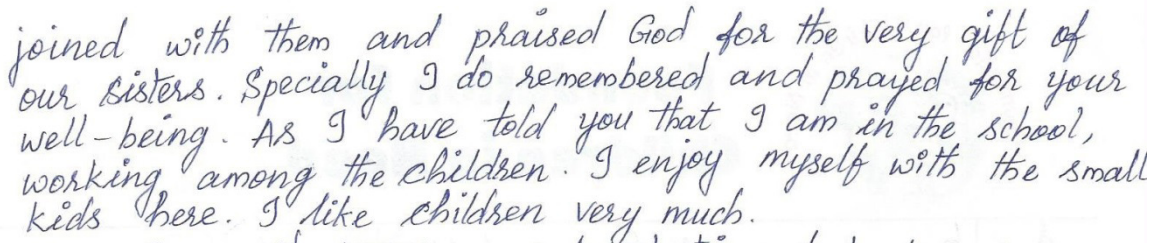 joined with them and praised God for the very gift of
our sisters. Specially I do remembered and prayed for your
well-being. As I have told you that I am in the school,
working among the children. I enjoy myself with the small
kids here. I like children very much.